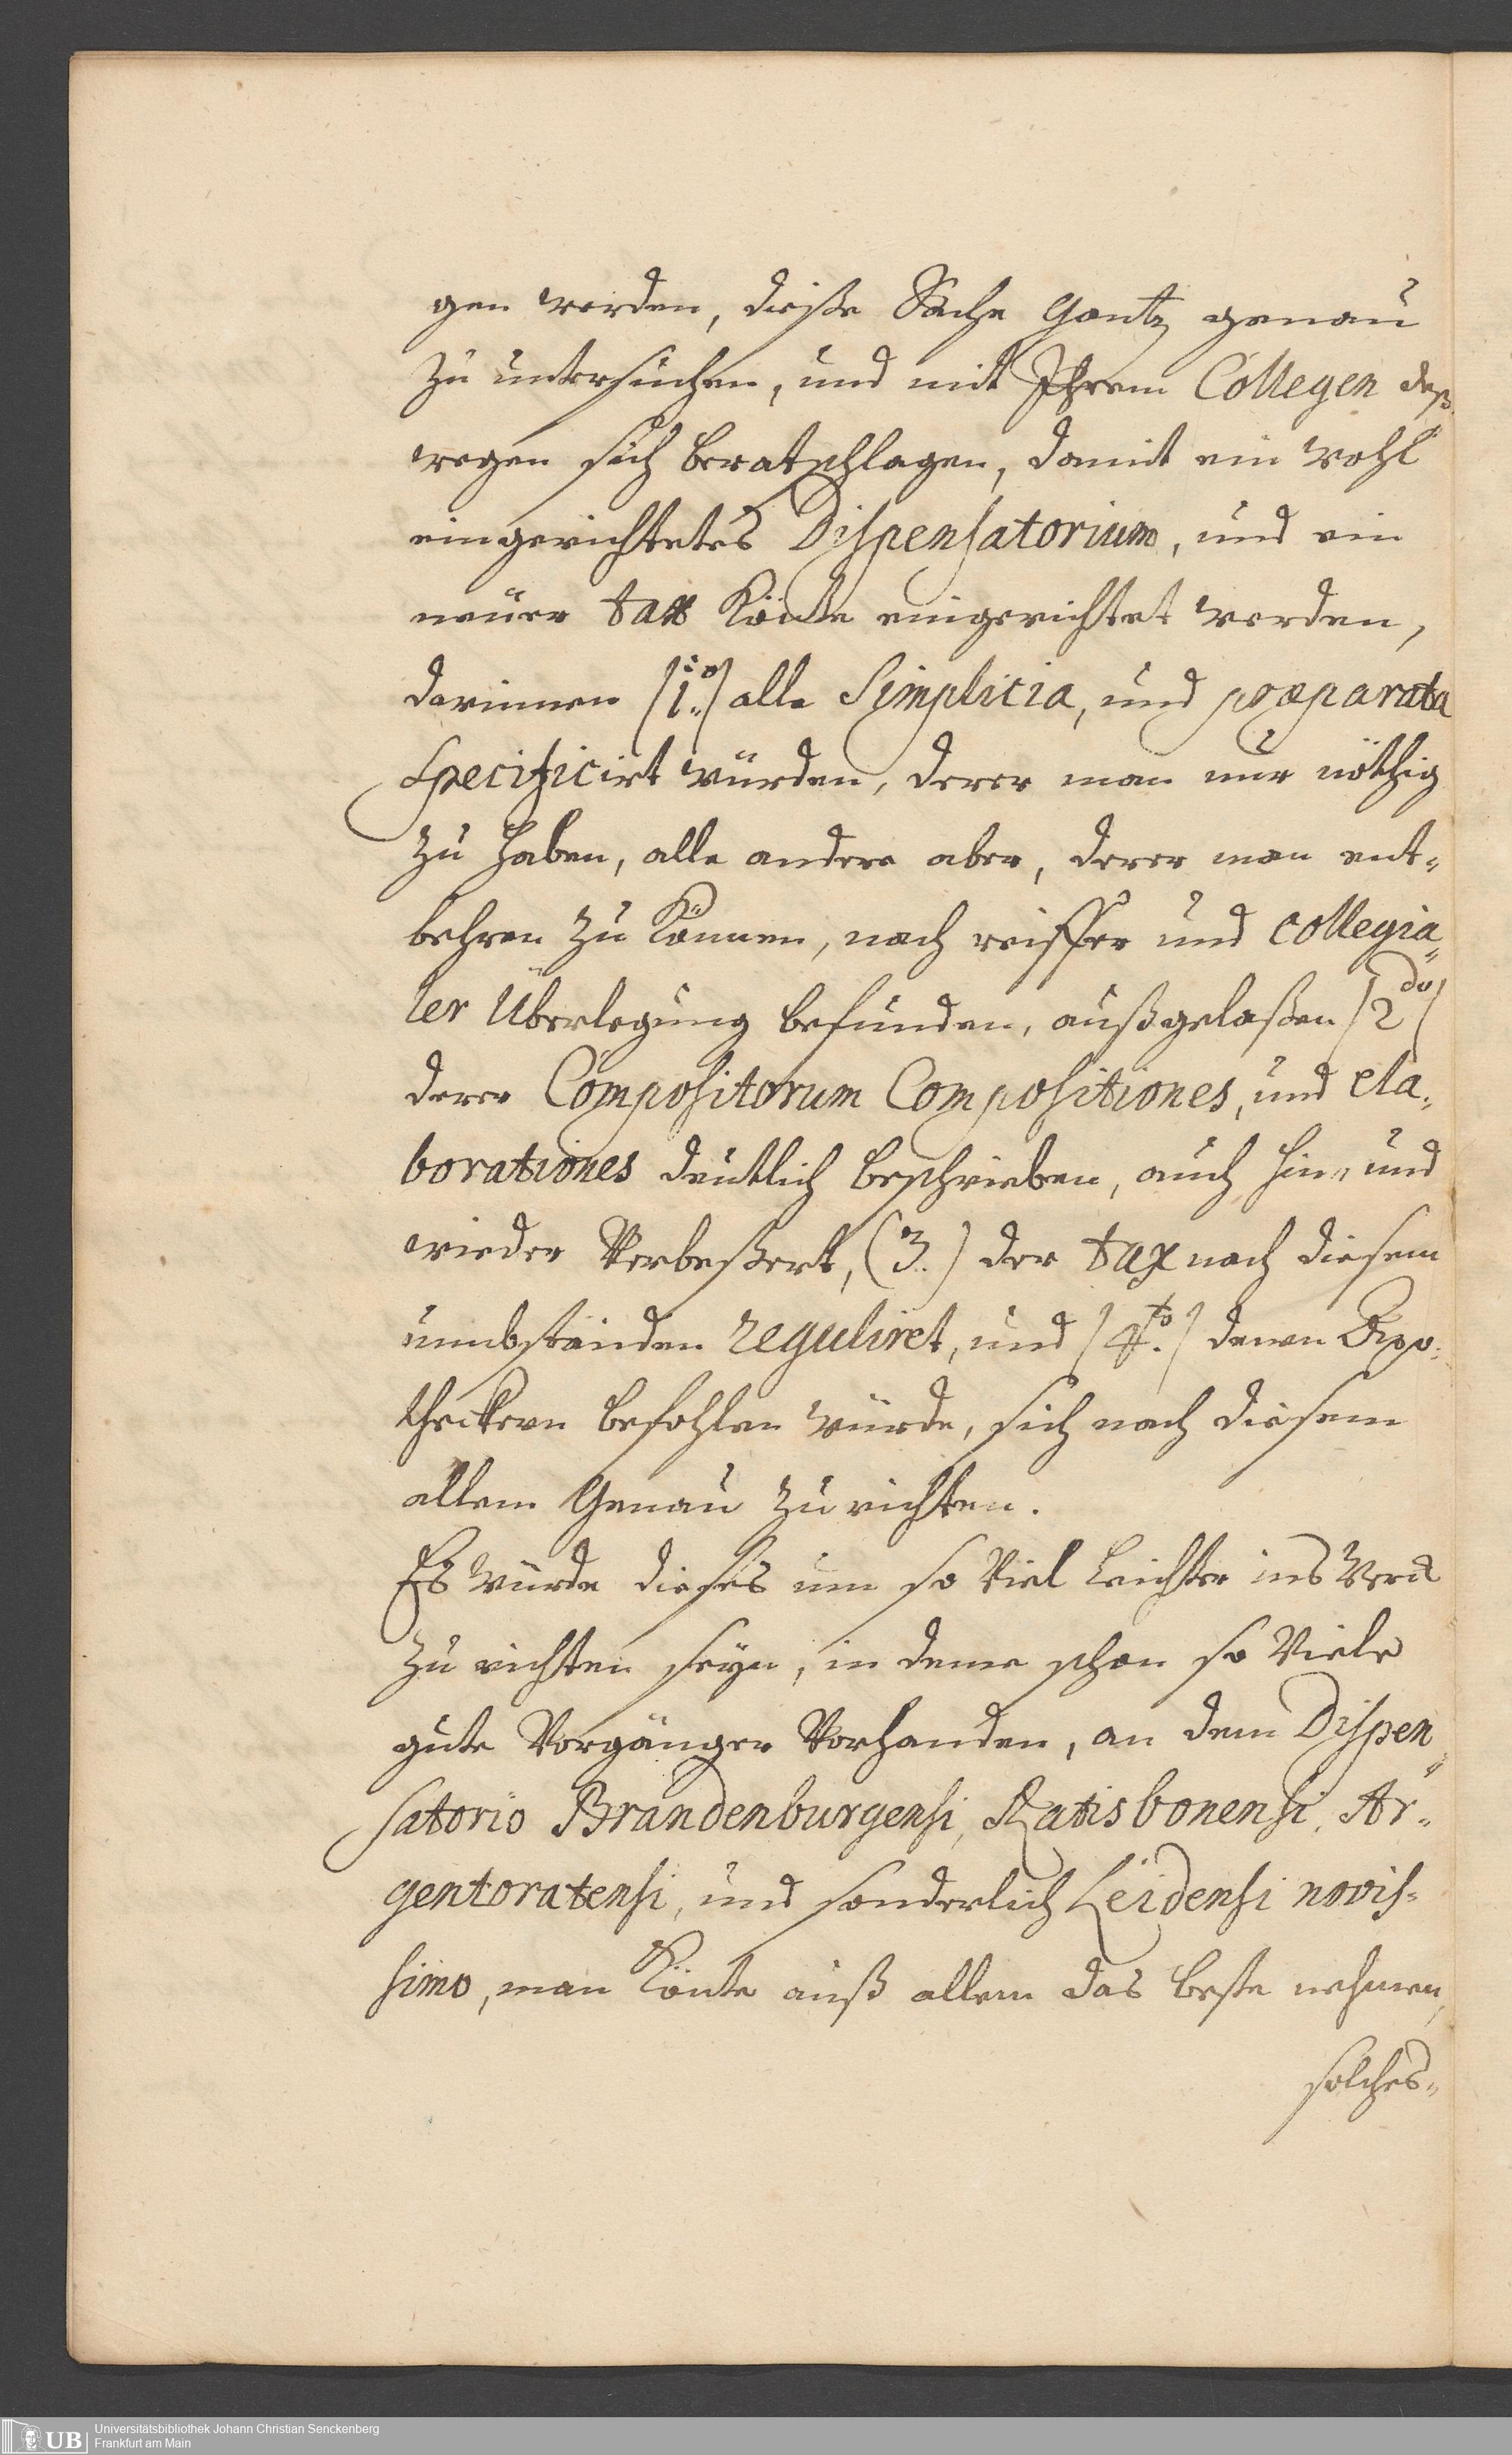 gen werden, dieße Sache Gantz genau
zu untersuchen, und mit Ihrem Collegen deß
wegen sich beratschlagen, damit ein wohl
eingerichtetes Dispensatorium, und ein
neüer tax Könte eingerichtet werden,
darinnen /1.mo/ alle Simplicia, und præparata
specificirt würden, derer man nur nöthig
zu haben, alle andere aber, derer man ent„
behren zu Können, nach reiffer und collegia„
ler Überlegung befunden, außgelaßen /2do/
derer Compositorum Compositiones, und ela„
borationes deutlich beschrieben, auch hin„ und
wieder Verbeßert, (3.) der tax nach diesem
umbständen reguliret, und /4to./ denen Apo„
theckern befohlen würde, sich nach diesem
allem Genau zu richten.
Es würde dieses um so Viel leichter ins Werck
zu richten seyn, in deme schon so Viele
gute Vorgänger Vorhanden, an dem Dispen„
satorio Brandenburgensi, Ratisbonensi, Ar„
gentoratensi, und sonderlich Leidensi novis„
simo, man Könte auß allem das beste nehmen,
solches„
UB
Universitätsbibliothek Johann Christian Senckenberg
Frankfurt am Main